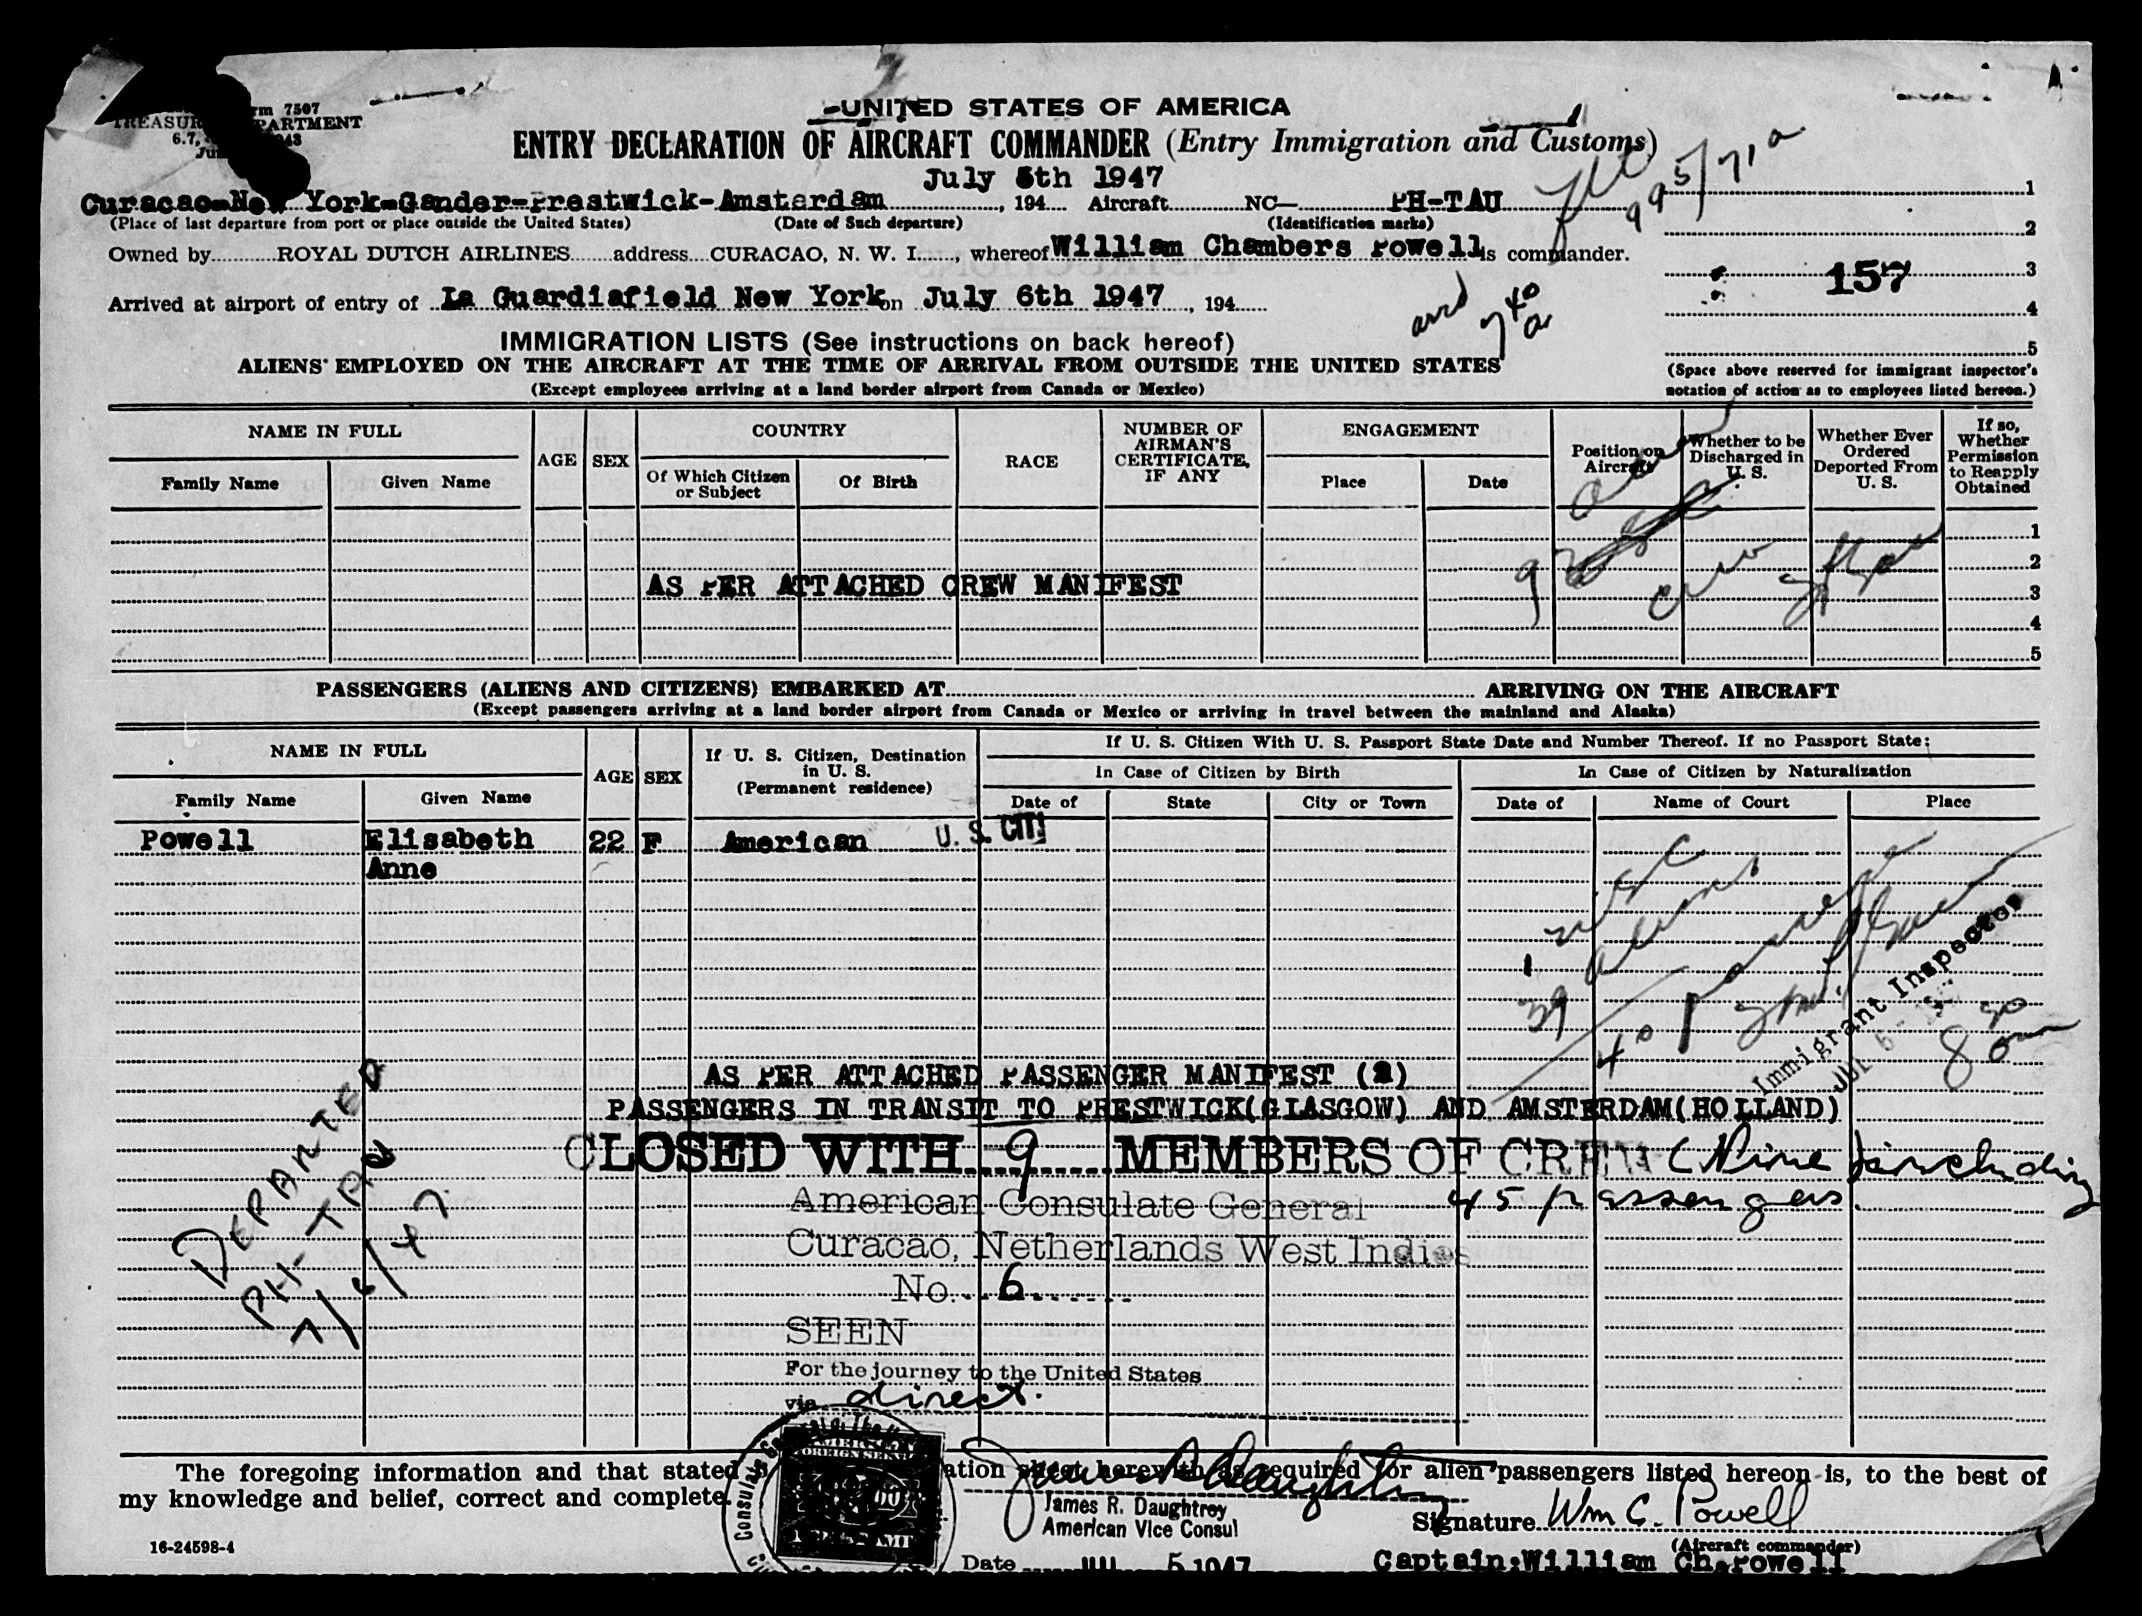 rm 7507
TREASURY DEPARTMENT
UNITED STATES OF AMERICA
ENTRY DECLARATION OF AIRCRAFT COMMANDER (Entry Immigration and Customs)
July 5th 1947
995/71a
Curacao-New York-Gander-Prestwick-Amsterdam, 194 Aircraft NC— PH-TAU
1
(Place of last departure from port or place outside the United States) (Date of Such departure) (Identification marks)
2
Owned by ROYAL DUTCH AIRLINES address CURACAO, N. W. I., whereof William Chambers Powell is commander.
3
157
Arrived at airport of entry of La Guardiafield New York on July 6th 1947, 194
4
arrd 740 a
5
IMMIGRATION LISTS (See instructions on back hereof)
ALIENS EMPLOYED ON THE AIRCRAFT AT THE TIME OF ARRIVAL FROM OUTSIDE THE UNITED STATES
(Except employees arriving at a land border airport from Canada or Mexico)
(Space above reserved for immigrant inspector's
notation of action as to employees listed hereon.)
NAME IN FULL
Family Name Given Name
AGE SEX
COUNTRY
Of Which Citizen or Subject
Of Birth
RACE
NUMBER OF AIRMAN'S CERTIFICATE, IF ANY
ENGAGEMENT
Place Date
Position on Aircraft
Whether to be Discharged in U. S.
Whether Ever Ordered Deported From U. S.
If so, Whether Permission to Reapply Obtained
1
2
AS PER ATTACHED CREW MANIFEST
9 crew
3
4
5
PASSENGERS (ALIENS AND CITIZENS) EMBARKED AT ARRIVING ON THE AIRCRAFT
(Except passengers arriving at a land border airport from Canada or Mexico or arriving in travel between the mainland and Alaska)
NAME IN FULL
Family Name Given Name
AGE SEX
If U. S. Citizen, Destination in U. S. (Permanent residence)
If U. S. Citizen With U. S. Passport State Date and Number Thereof. If no Passport State:
In Case of Citizen by Birth
In Case of Citizen by Naturalization
Date of State City or Town
Date of Name of Court Place
Powell Elisabeth 22 F American U. S. CIT
Anne
1 USC
39 aliens
40
Immigrant Inspector
JUL 6
8 30 am
AS PER ATTACHED PASSENGER MANIFEST (2)
PASSENGERS IN TRANSIT TO PRESTWICK(GLASGOW) AND AMSTERDAM(HOLLAND)
CLOSED WITH 9 MEMBERS OF CREW (Nine) including
45 passengers.
American Consulate General
Curacao, Netherlands West Indies
No. 6
SEEN
For the journey to the United States
via direct.
DEPARTED
PH-TAU
7/6/47
The foregoing information and that stated ation sheet herewith as required for alien passengers listed hereon is, to the best of
my knowledge and belief, correct and complete.
James R. Daughtrey
James R. Daughtrey
American Vice Consul
Signature Wm C. Powell
(Aircraft commander)
16-24598-4
Date JUL 5 1947
Captain:William Ch.Powell